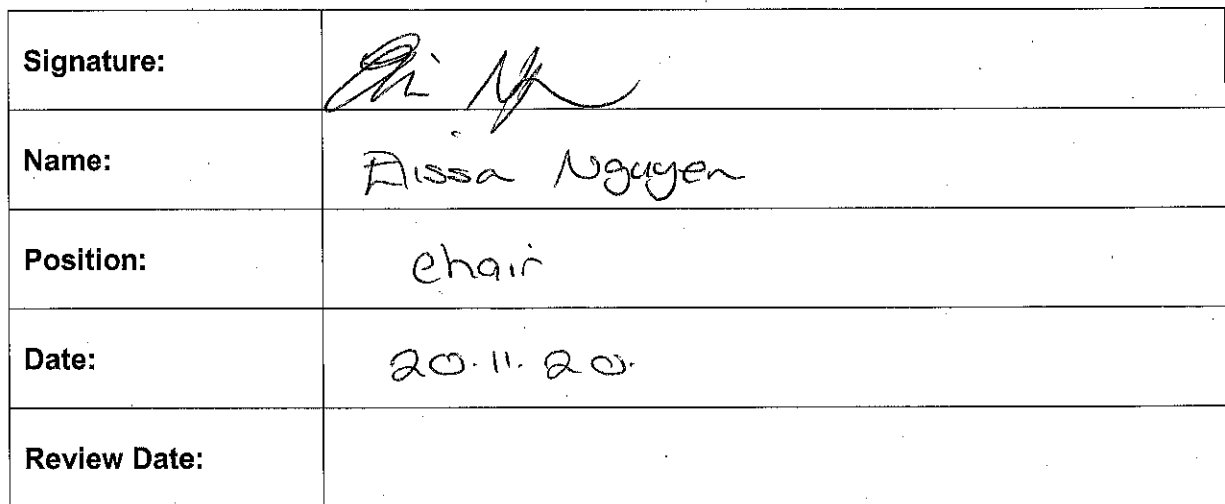 Signature:
Name: Elissa Nguyen
Position: Chair
Date: 20.11.20.
Review Date: